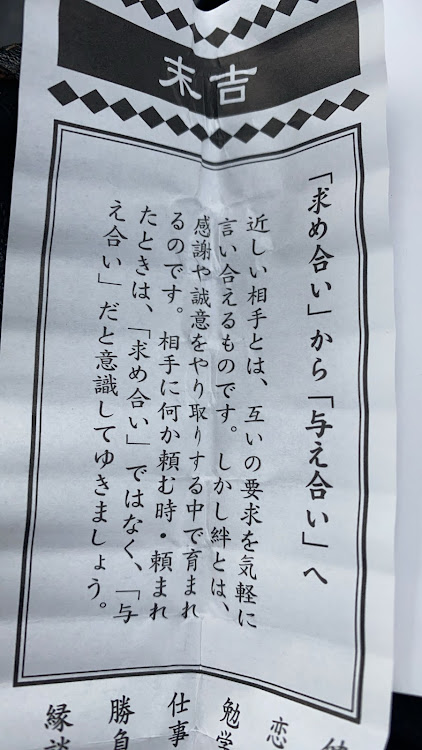 末吉
「求め合い」から「与え合い」へ
近しい相手とは、互いの要求を気軽に
言い合えるものです。しかし絆とは、
感謝や誠意をやり取りする中で育まれ
るのです。相手に何か頼む時・頼まれ
たときは、「求め合い」ではなく、「与
え合い」だと意識してゆきましょう。
恋
勉学
仕事
勝負
縁談